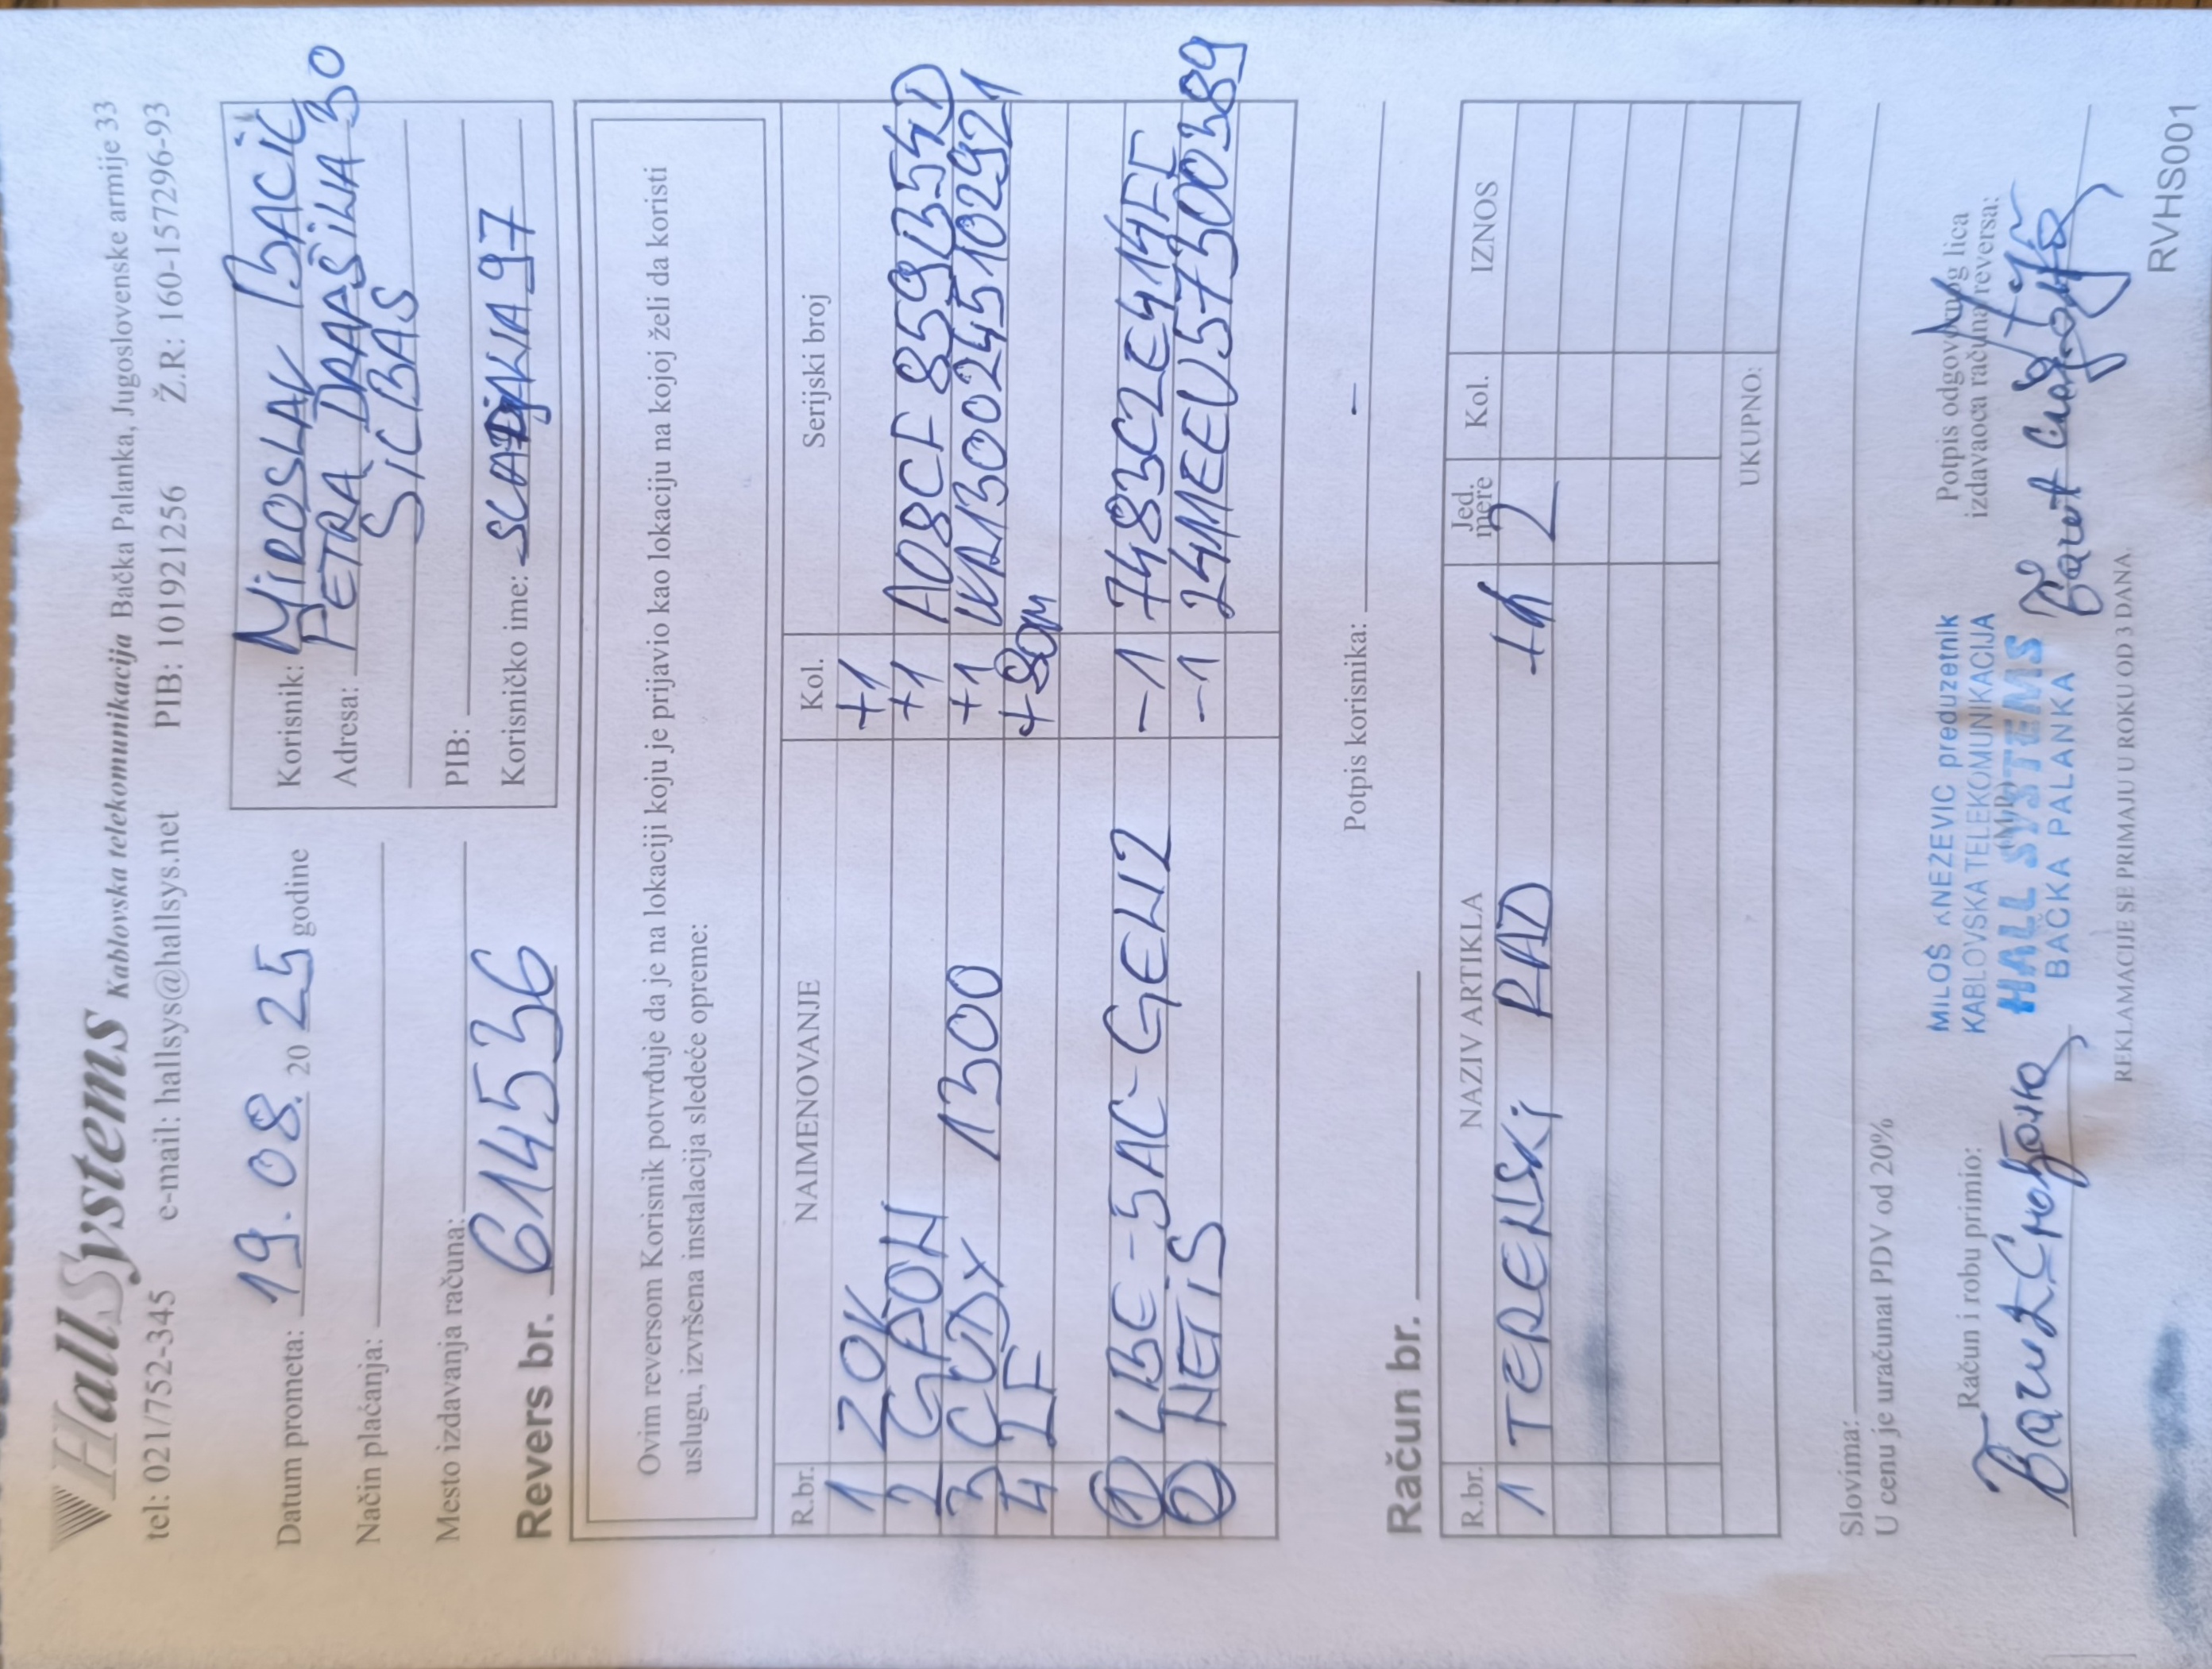 HallSystems Kablovska telekomunikacija Bačka Palanka, Jugoslovenske armije 33
tel: 021/752-345 e-mail: hallsys@hallsys.net PIB: 101921256 Ž.R: 160-157296-93
Datum prometa: 19.08. 2025 godine
Način plaćanja:
Mesto izdavanja računa:
Revers br. 614536
Korisnik: MIROSLAV BACIĆ
Adresa: PETRA DRAPŠINA 30
SICBAS
PIB:
Korisničko ime:
Ovim reversom Korisnik potvrđuje da je na lokaciji koju je prijavio kao lokaciju na kojoj želi da koristi
uslugu, izvršena instalacija sledeće opreme:
R.br. NAIMENOVANJE Kol. Serijski broj
1 ZOK +1
2 GPON +1 A08CF859B54D
3 CUDY 1300 +1 WR1300245102921
4 IF +80m
1 LBE-5AC-GEN2 -1 7483C2E414FE
2 NETIS -1 24MEEU57300389
Potpis korisnika:
Račun br.
R.br. NAZIV ARTIKLA Jed. mere Kol. IZNOS
1 TERENSKI RAD +h 2
UKUPNO:
Slovima:
U cenu je uračunat PDV od 20%
Račun i robu primio:
MILOŠ KNEZEVIC preduzetnik
KABLOVSKA TELEKOMUNIKACIJA
HALL SYSTEMS
BAČKA PALANKA
Potpis odgovornog lica
izdavaoca računa/reversa:
REKLAMACIJE SE PRIMAJU U ROKU OD 3 DANA.
RVHS001